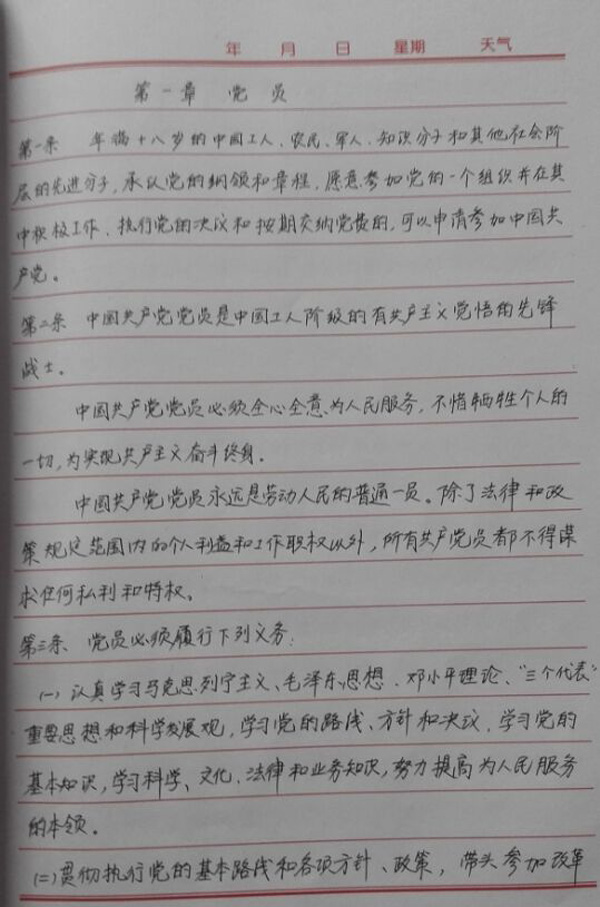 年 月 日 星期 天气
第一章 党员
第一条 年满十八岁的中国工人、农民、军人、知识分子和其他社会阶
层的先进分子，承认党的纲领和章程，愿意参加党的一个组织并在其
中积极工作、执行党的决议和按期交纳党费的，可以申请参加中国共
产党。
第二条 中国共产党党员是中国工人阶级的有共产主义觉悟的先锋
战士。
中国共产党党员必须全心全意为人民服务，不惜牺牲个人的
一切，为实现共产主义奋斗终身。
中国共产党党员永远是劳动人民的普通一员。除了法律和政
策规定范围内的个人利益和工作职权以外，所有共产党员都不得谋
求任何私利和特权。
第三条、党员必须履行下列义务：
（一）认真学习马克思列宁主义、毛泽东思想、邓小平理论、“三个代表”
重要思想和科学发展观，学习党的路线、方针和决议，学习党的
基本知识，学习科学、文化、法律和业务知识，努力提高为人民服务
的本领。
（二）贯彻执行党的基本路线和各项方针、政策，带头参加改革